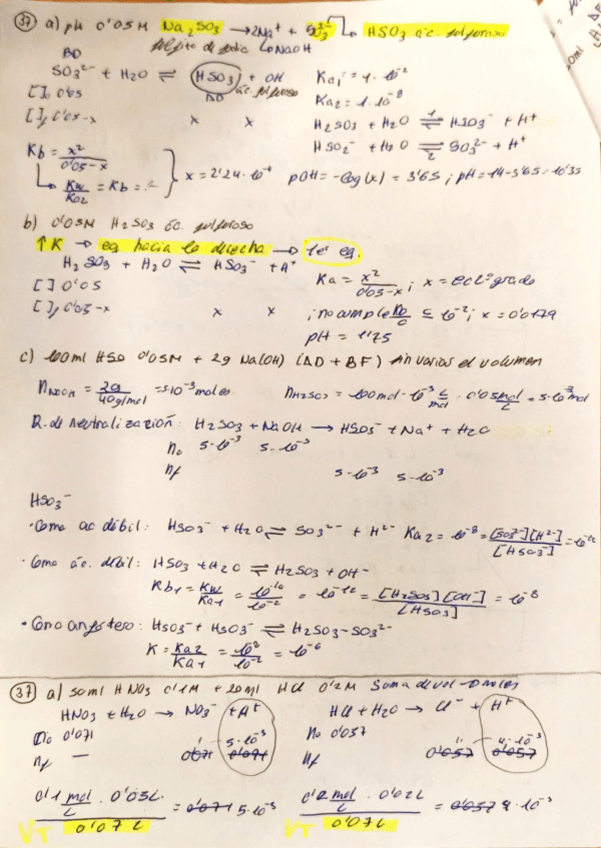 37 a) pH 0'05M Na2SO3 → 2Na+ + SO3 2- HSO3 ác. sulfuroso
sulfito de sodio NaOH
BD
SO3 2- + H2O ⇌ HSO3 + OH Ka1 = 1·10^-2
[ ]0 0'05 BD ác. sulfuroso Ka2 = 1·10^-8
[ ]f 0'05-x x x H2SO3 + H2O ⇌ HSO3^- + H+
1
HSO3^- + H2O ⇌ SO3^2- + H+
2
Kb = x^2 / 0'05-x } x = 2'24·10^-4 pOH = -log(x) = 3'65 ; pH = 14-3'65 = 10'35
Kw / Ka2 = Kb =
b) 0'05M H2SO3 ác. sulfuroso
↑K → eq hacia la derecha →
H2SO3 + H2O ⇌ HSO3^- + H+ Ka = x^2 / 0'05-x ; x = ec 2º grado
[ ] 0'05
[ ]f 0'05-x x x ; no cumple ≤ 10^-2 ; x = 0'0179
pH = 1'75
c) 100ml HSO 0'05M + 2g Na(OH) (AD + BF) sin variar el volumen
nNaOH = 2g / 40g/mol = 5·10^-3 moles nH2SO3 = 100mol·10^-3 L/mol · 0'05 mol/L = 5·10^-3 mol
R. de neutralización: H2SO3 + NaOH → HSO3^- + Na+ + H2O
n0 5·10^-3 5·10^-3
nf 5·10^-3 5·10^-3
HSO3^-
· Como ac débil: HSO3^- + H2O ⇌ SO3^2- + H^2- Ka2 = 10^-8 = [SO3^2-][H^2-] / [HSO3^-] = 10^-12
· Como ác. débil: HSO3 + H2O ⇌ H2SO3 + OH-
Kb1 = Kw / Ka1 = 10^-14 / 10^-2 = 10^-12 = [H2SO3][OH^-] / [HSO3] = 10^-8
· Como anfótero: HSO3^- + HSO3^- ⇌ H2SO3 - SO3^2-
K = Ka2 / Ka1 = 10^-8 / 10^-2 = 10^-6
37 a) 50ml HNO3 0'1M + 20ml HCl 0'2M Suma de vol → moles
HNO3 + H2O → NO3^- + H+ HCl + H2O → Cl^- + H+
n0 0'071 5·10^-3 n0 0'057 4·10^-3
nf — 0'071 0'071 nf 0'057 0'057
0'1 mol/L · 0'05L / 0'07L = 0'071 5·10^-3 0'2 mol/L · 0'02L / 0'07L = 0'057 4·10^-3
VT VT